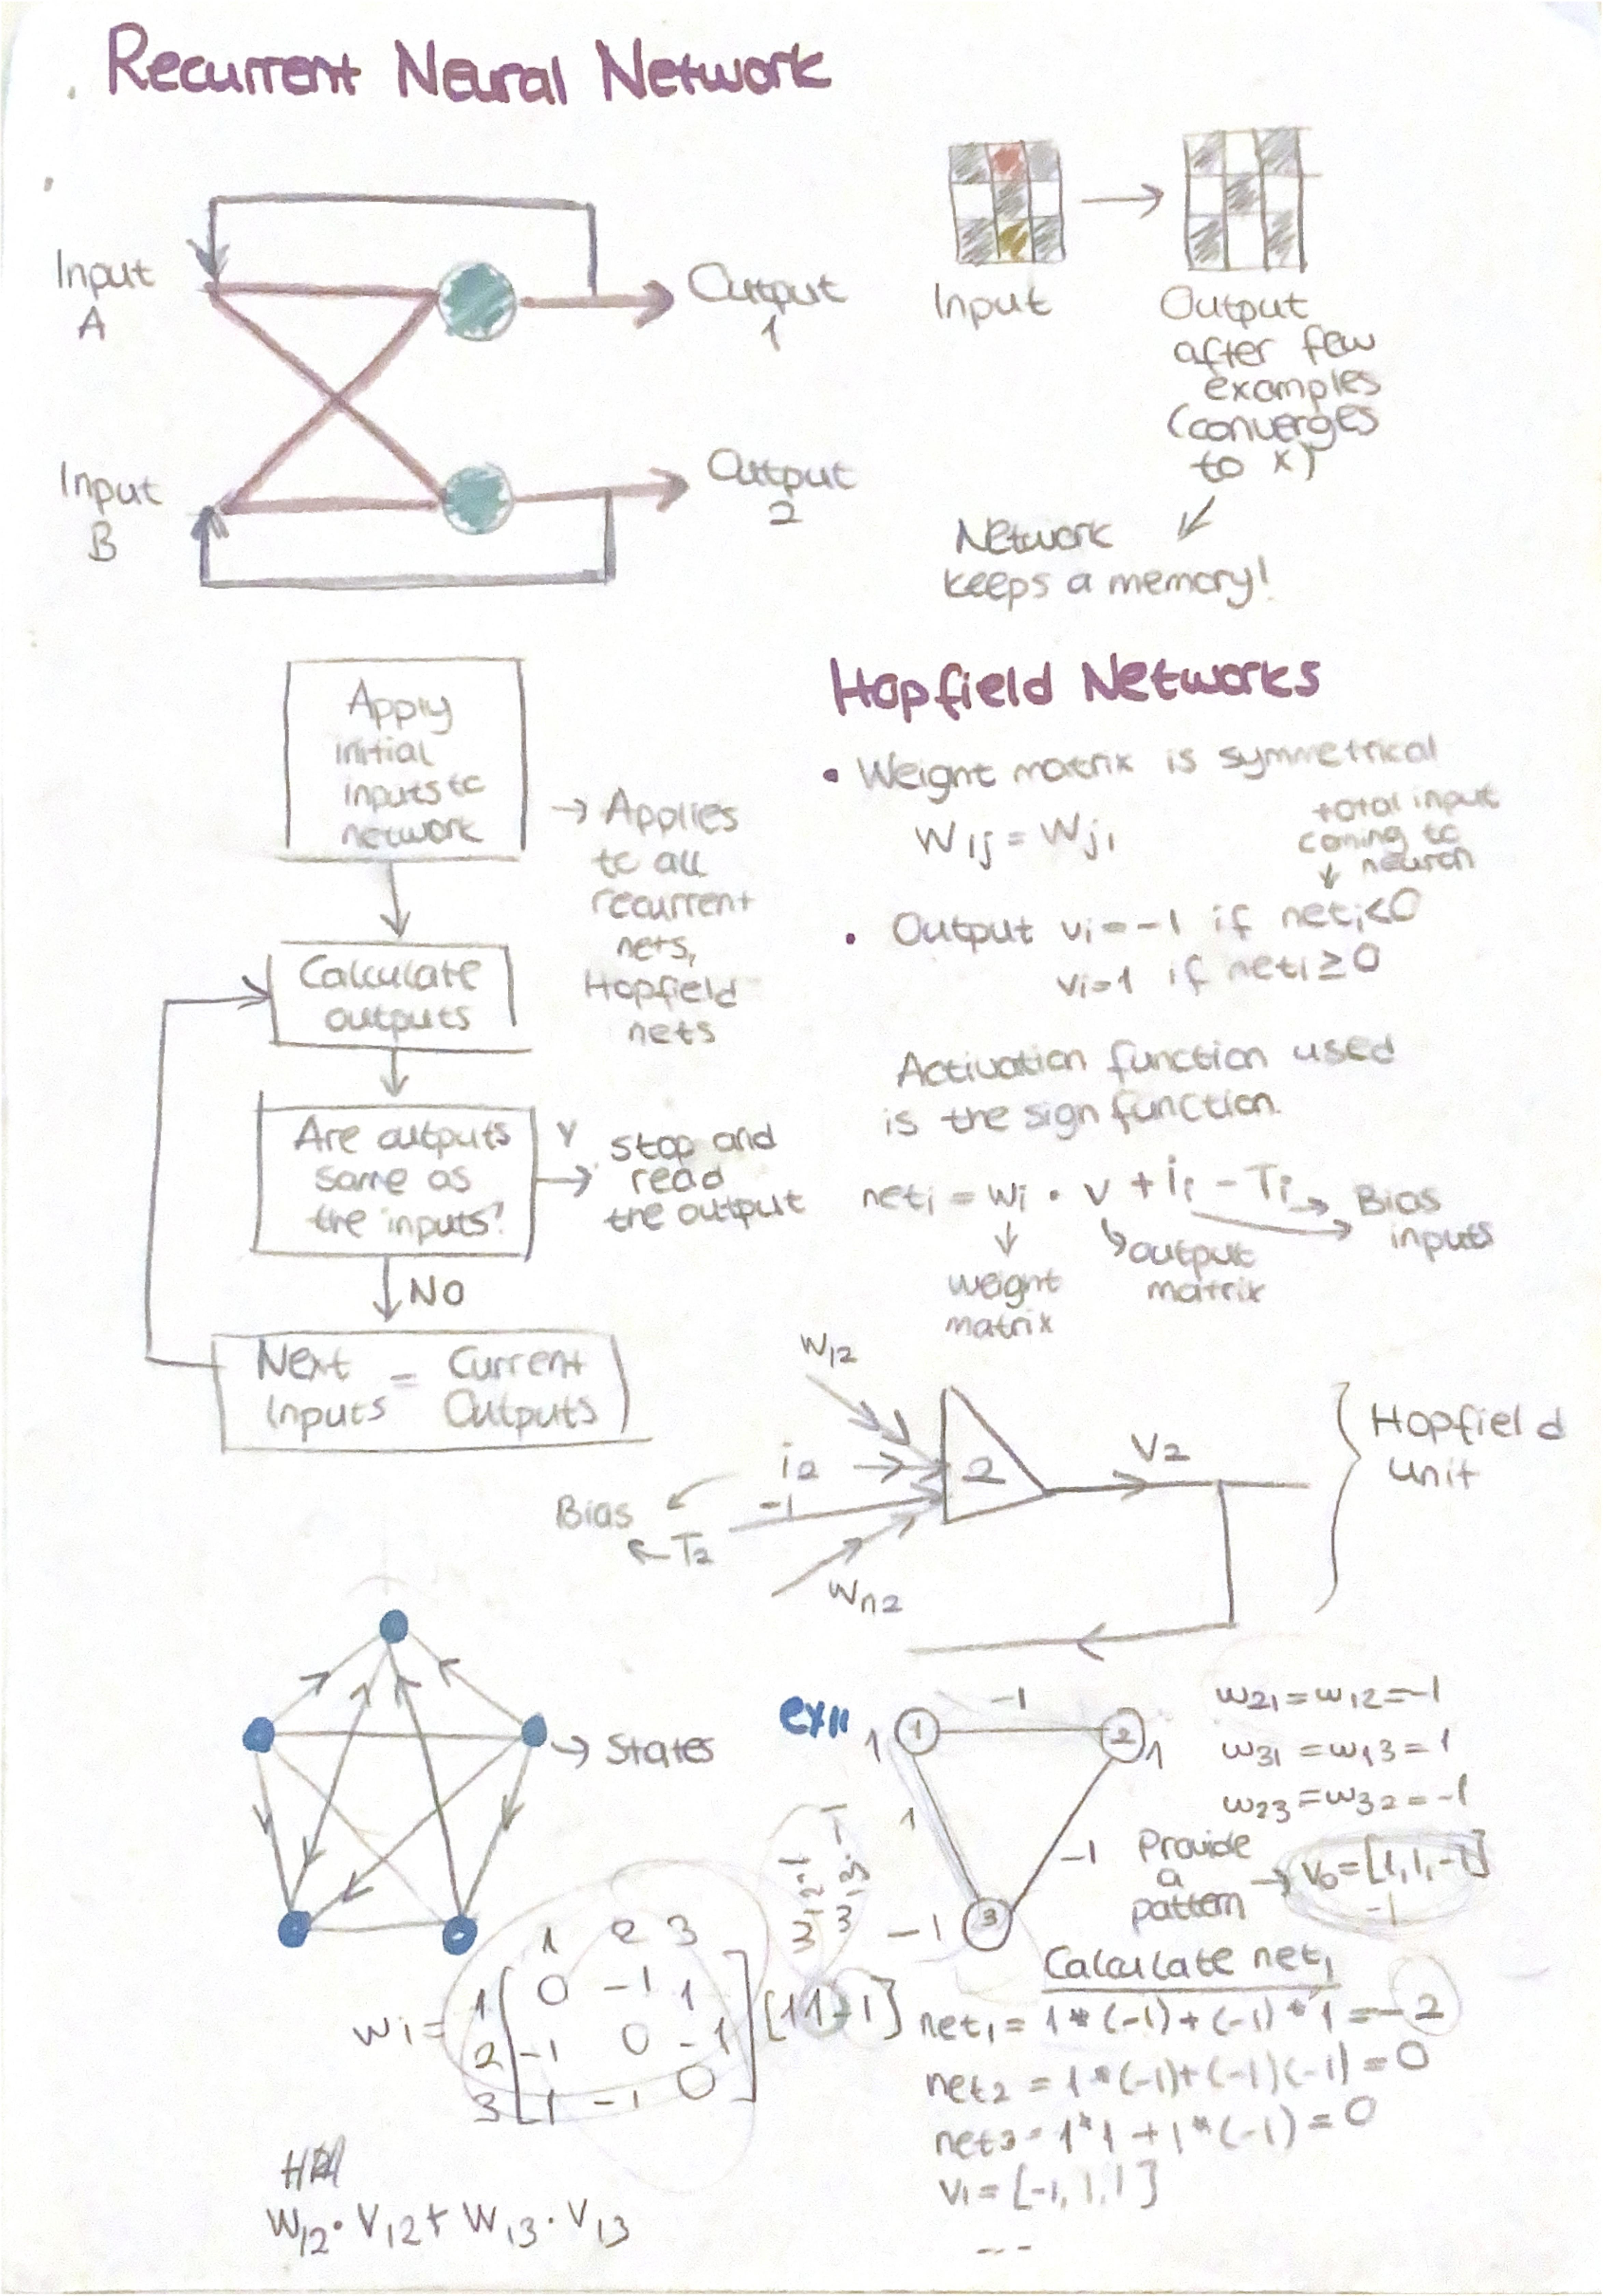 Recurrent Neural Network
Input
A
Output
1
Input
B
Output
2
Input
Output
after few
examples
(converges
to x)
Network
keeps a memory!
Apply
initial
inputs to
network
→ Applies
to all
recurrent
nets,
Hopfield
nets
Calculate
outputs
Are outputs
same as
the inputs?
Y
stop and
read
the output
NO
Next Inputs = Current Outputs
Hopfield Networks
• Weight matrix is symmetrical
Wij = Wji
total input
coming to
neuron
• Output vi = -1 if neti<0
vi=1 if neti ≥ 0
Activation function used
is the sign function.
neti = wi • v + ii - Ti → Bias
inputs
weight
matrix
output
matrix
W12
i2
-1
Bias
T2
Wn2
2
V2
Hopfield
unit
→ States
ex11
1
1
-1
2
1
1
-1
-1
3
w21 = w12 = -1
w31 = w13 = 1
w23 = w32 = -1
Provide
a
pattern
→ v0 = [1, 1, -1]
-1
1 2 3
wi =
1 [ 0 -1 1
2 -1 0 -1
3 1 -1 0 ]
[1 1 -1]
Calculate net1
net1 = 1*(-1)+(-1)*1 = -2
net2 = 1*(-1)+(-1)(-1) = 0
net3 = 1*1 + 1*(-1) = 0
v1 = [-1, 1, 1]
---
W12 • V12 + W13 • V13